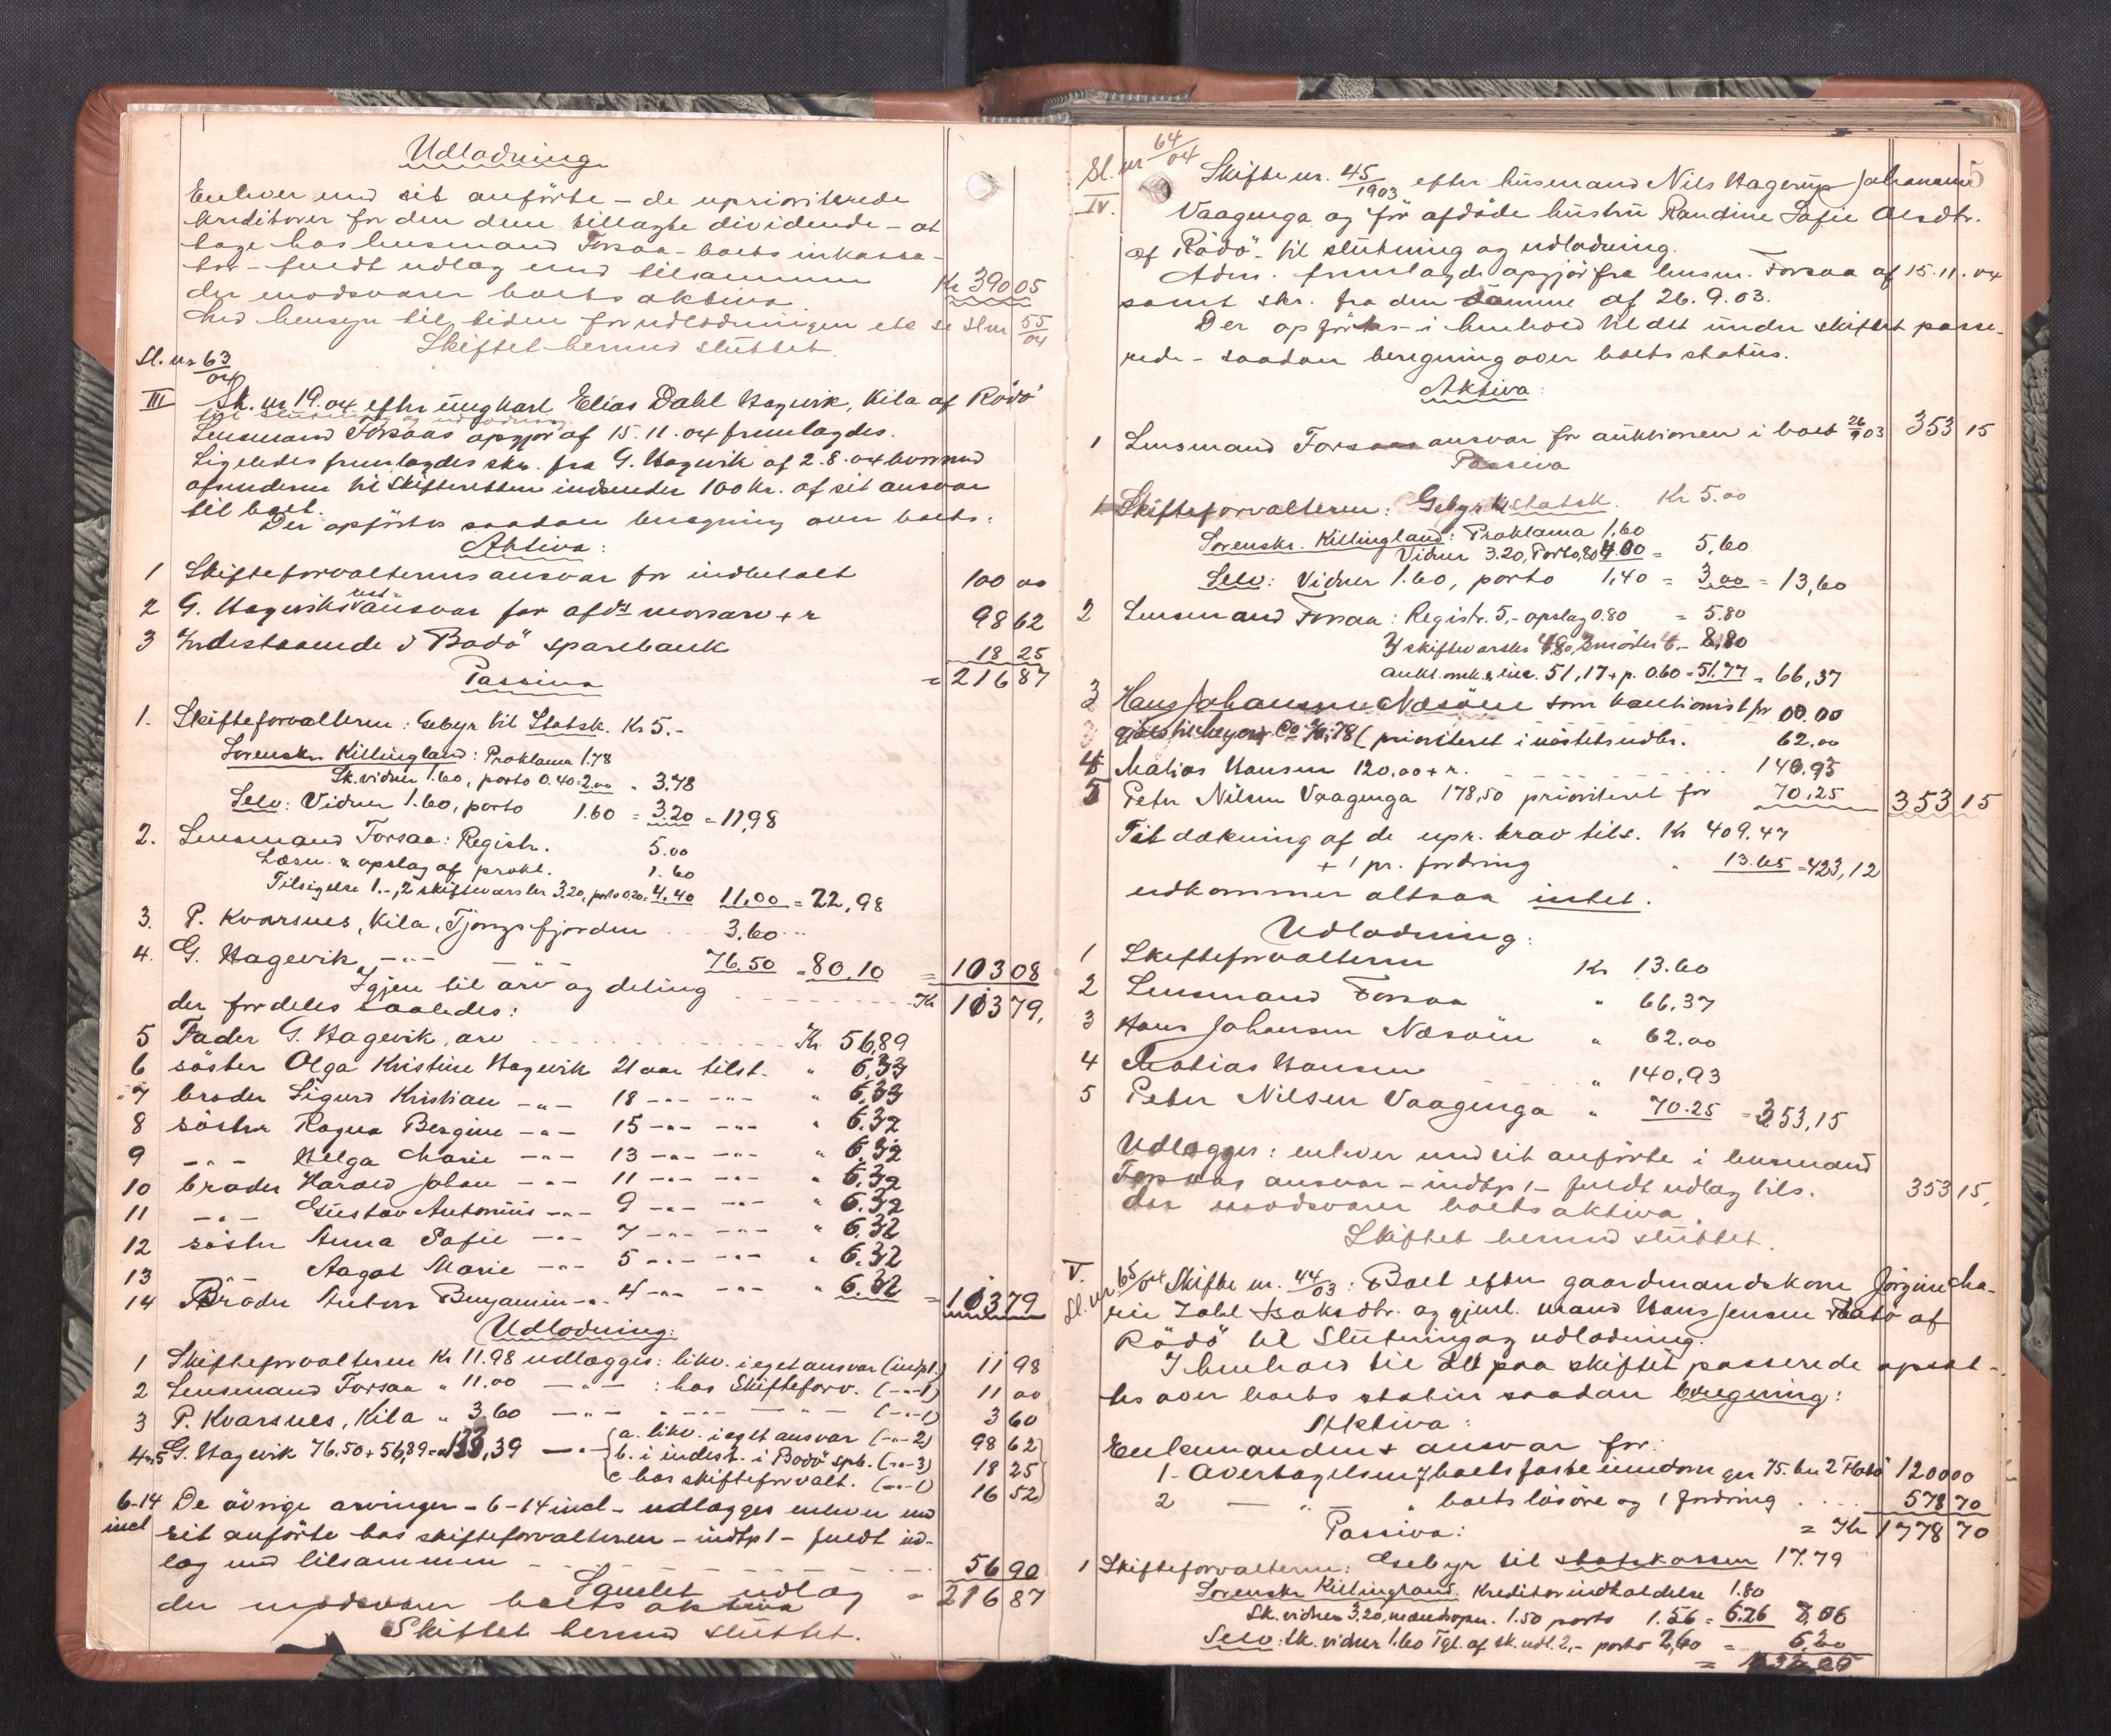 Udlodning
Enhver med sit anførte – de uprioriterede
kreditorer for den dem tillagte dividende – at
tage hos lensmand Forsaa – boets inkassa-
tor – fuldt udlæg med tilsammen
der modsvarer boets aktiva Kr 390 05
Med hensyn til tiden for udlodningen etc se Sl nr 55/04
Skiftet hermed sluttet.
Sl. nr 63/04
III Sk. nr 19.04 efter ungkarl Elias Dahl Hagevik, Kila af Rödö
til slutning og udlodning
Lensmand Forsaas opgjør af 15.11.04 fremlagdes.
Ligeledes fremlagdes skr. fra G. Hagevik af 2.8.04 hvormed
afsenderen til Skifteretten indsender 100 Kr. af sit ansvar
til boet.
Der opførtes saadan beregning over boets:
Aktiva:
1 Skifteforvalterens ansvar for indbetalt 100 00
2 G. Hageviks rest ansvar for afdes morsarv + r 98 62
3 Indestaaende i Bodö sparebank 18 25
Passiva = 216 87
1. Skifteforvalteren: Gebyr til Statsk. Kr 5.-
Sorenskr. Killingland: Proklama 1.78
Sk.vidner 1.60, porto 0.40 = 2.00 " 3.78
Selv: Vidner 1.60, porto 1.60 = 3.20 = 11,98
2. Lensmand Forsaa: Registr. 5.00
Læsn. & opslag af prokl. 1.60
Tilsigelse 1.-, 2 skiftevarsler 3.20, porto 0.20 = 4.40 11.00 = 22,98
3. P. Kvarsnes, Kila, Tjongsfjorden 3.60
4. G. Hagevik -"- -"- 76.50 = 80,10 = 103 08
Igjen til arv og deling
der fordeles saaledes: Kr 113 79,
5 Fader G. Hagevik, arv Kr 56,89
6 söster Olga Kristine Hagevik 21 aar tilst. " 6,33
7 broder Sigurd Kristian -"- 18 -"- -"- " 6,33
8 söster Ragna Bergine -"- 15 -"- -"- " 6.32
9 -"- Helga Marie -"- 13 -"- -"- " 6,32
10 broder Harald Johan -"- 11 -"- -"- " 6.32
11 -"- Gustav Antonius -"- 9 -"- -"- " 6.32
12 söster Anna Sofie -"- 7 -"- -"- " 6.32
13 -"- Aagot Marie -"- 5 -"- -"- " 6.32
14 Broder Anton Benjamin -"- 4 -"- -"- " 6.32 = 113 79
Udlodning:
1 Skifteforvalteren Kr 11.98 udlægges: likv. i eget ansvar (indtp 1.) 11 98
2 Lensmand Forsaa " 11.00 -"- : hos Skifteforv. (-"- 1) 11 00
3 P. Kvarsnes, Kila " 3.60 -"- -"- -"- (-"- 1) 3 60
4 & 5 G. Hagevik 76.50 + 56,89 = 133,39 -"- a. likv. i eget ansvar (-"- 2) 98 62
b. i indest. i Bodö spb. (-"- 3) 18 25
c hos skifteforvalt. (-"- 1) 16 52
6-14 incl De övrige arvinger – 6-14 incl – udlægges enhver med
sit anförte hos skifteforvalteren – indtp 1 – fuldt ud-
læg med tilsammen 56 90
Samlet udlæg = 216 87
der modsvarer boets aktiva
Skiftet hermed sluttet.
5
Sl. nr 64/04
IV. Skifte nr. 45/1903 efter husmand Nils Hagerup Johansen
Vaagenga og før afdöde hustru Randine Sofie Olsdtr.
af Rödö – til slutning og udlodning.
Adm. fremlagde opgjör fra lensm. Forsaa af 15.11.04
samt skr. fra den samme af 26.9.03.
Der opförtes – i henhold til det under skiftet passe-
rede – saadan beregning over boets status.
Aktiva:
1 Lensmand Forsaas ansvar for auktionen i boet 26/9 03 353 15
Passiva
1 Skifteforvalteren: Gebyr til statsk. Kr 5.00
Sorenskr. Killingland: Proklama 1,60
Vidner 3.20, Porto,80 4.00 = 5,60
Selv: Vidner 1.60, porto 1,40 = 3,00 = 13,60
2 Lensmand Forsaa: Registr. 5,- opslag 0.80 = 5.80
3 skiftevarsler 4.80, 2 möder 4.- 8,80
aukt.omk. & inc. 51,17 + p. 0.60 = 51.77 = 66,37
3 Hans Johansen Næsöien som kautionist for
(prioriteret i uöstets udbr. 62.00
4 Matias Hansen 120.00 + r. 140.93
5 Peter Nilsen Vaagenga 178,50 prioriteret for 70,25 353 15
Til dækning af de upr. krav tils. Kr 409.47
+ 1 pr. fordring " 13.65 = 423,12
udkommer altsaa intet.
Udlodning:
1 Skifteforvalteren Kr 13.60
2 Lensmand Forsaa " 66,37
3 Hans Johansen Næsöien " 62.00
4 Matias Hansen " 140,93
5 Peter Nilsen Vaagenga " 70.25 = 353,15
Udlægges: enhver med sit anförte i lensmand
Forsaas ansvar – indtp 1 – fuldt udlæg tils. 353 15,
der modsvarer boets aktiva.
Skiftet hermed sluttet.
V.
Sl. nr 65/04 Skifte nr. 44/03: Boet efter gaardmandskone Jörgine Ma-
rie Zahl Isaksdtr. og gjenl. mand Hans Jensen Flatö af
Rödö til Slutning og udlodning.
I henhold til det paa skiftet passerede opsat-
tes over boets status saadan beregning:
Aktiva:
Enkemandens ansvar for:
1 - Overtagelsen af boets faste eiendom gnr 75. bn 2 Flatö 1200 00
2 -"- " boets lösöre og 1 fordring 578 70
Passiva: = Kr 1778 70
1 Skifteforvalteren: Gebyr til statskassen 17.79
Sorenskr Killingland. Kreditorindkaldelse 1.80
Sk. vidner 3,20, 1.50 porto 1.56 = 6.26 8,06
Selv: Sk. vidner 1.60 Tgl. af sk. udl. 2,- porto 2,60 = 6,20